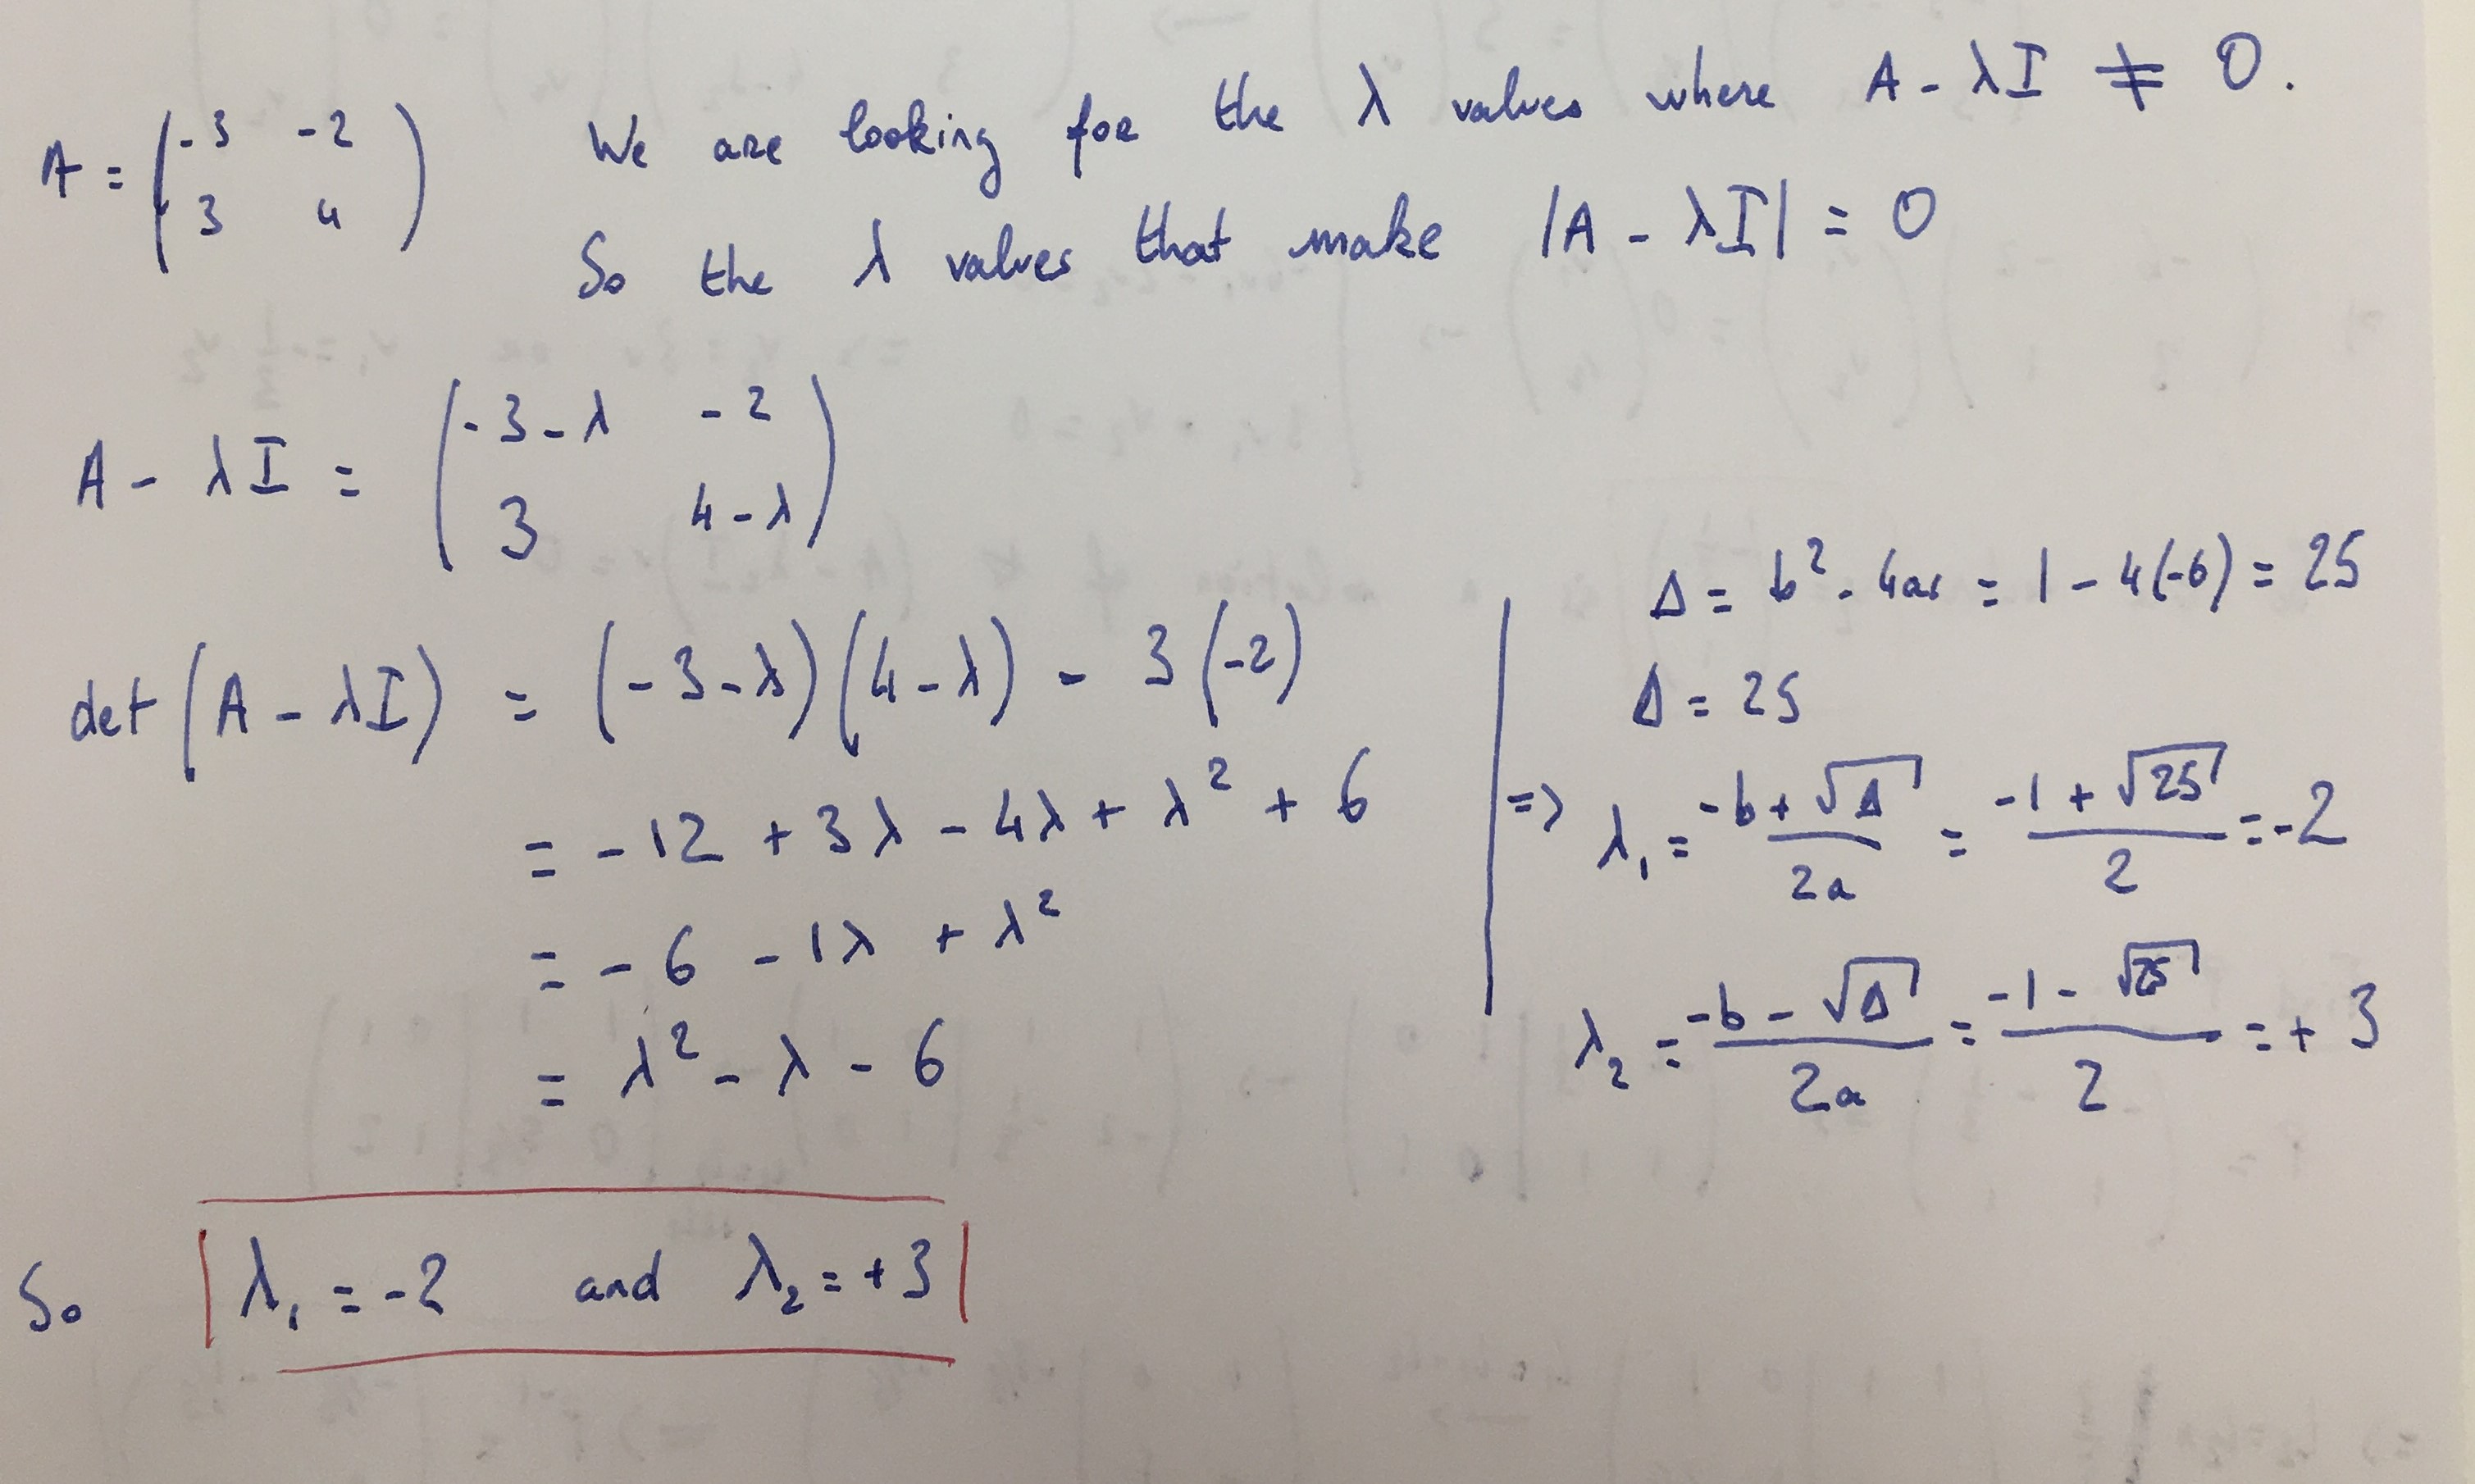 A = ( -3 -2
3 4 )
We are looking for the λ values where A - λI ≠ 0.
So the λ values that make |A - λI| = 0
A - λI = ( -3-λ -2
3 4-λ )
det(A - λI) = (-3-λ)(4-λ) - 3(-2)
= -12 + 3λ - 4λ + λ² + 6
= -6 - 1λ + λ²
= λ² - λ - 6
Δ = b² - 4ac = 1 - 4(-6) = 25
Δ = 25
=> λ₁ = (-b + √Δ)/2a = (-1 + √25)/2 = -2
λ₂ = (-b - √Δ)/2a = (-1 - √25)/2 = +3
So λ₁ = -2 and λ₂ = +3